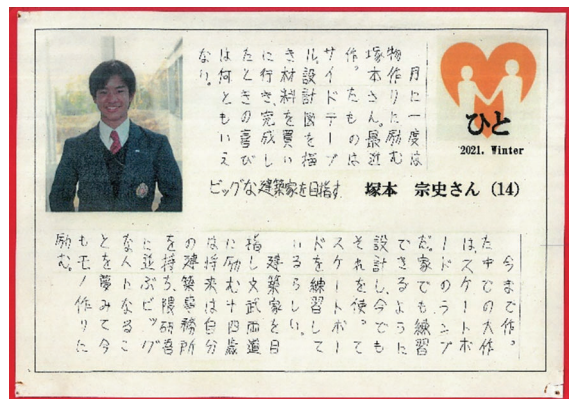 ひと
2021. Winter
月に一度は
物作りに励む
塚本さん。最近
作ったものは
サイドテーブ
ル。設計図を描
き材料を買い
に行き、完成し
たときの喜び
は何ともいえ
ない。
ビッグな建築家を目指す 塚本 宗史さん (14)
今まで作っ
た中での大作
はスケートボ
ードのランプ
だ。家でも練習
できるように
設計し、今でも
それを使って
スケートボー
ドを練習して
いるらしい。
建築家を目
指し文武両道
に励む十四歳
は将来は自分
の建築事務所
を持ち、隈研吾
に並ぶビッグ
な人となるこ
とを夢みて今
もモノ作りに
励む。